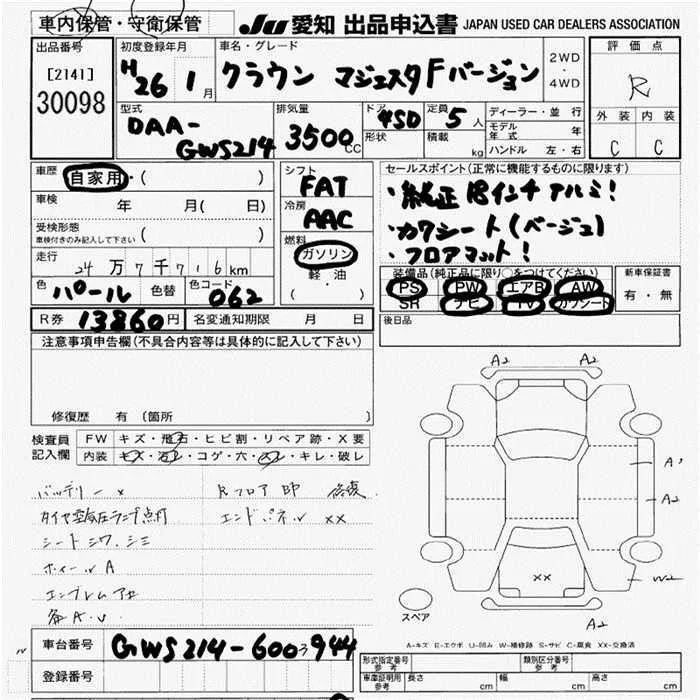 車内保管・守衛保管
JU 愛知 出品申込書 JAPAN USED CAR DEALERS ASSOCIATION
出品番号
[2141]
30098
初度登録年月
H26 1月
車名・グレード
クラウン マジェスタFバージョン
2WD
・
4WD
評価点
R
外装 内装
C C
型式
DAA-
GWS214
排気量
3500CC
ドア 4SD
形状
定員 5人
積載 kg
ディーラー・並行
モデル年式 年
ハンドル 左・右
車歴 自家用・( )
車検 年 月( 日)
受検形態
車検付きのみ記入して下さい ( )
走行 24万7千716km
色 パール 色替 色コード 062
R券 13860円 名変通知期限 月 日
シフト
FAT
冷房
AAC
燃料
ガソリン
軽・油
( )
セールスポイント(正常に機能するものに限ります)
・純正18インチアルミ!
・カワシート(ベージュ)
・フロアマット!
装備品(純正品に限り○をつけてください)
PS PW エアB AW
SR ナビ TV カワシート
新車保証書
有・無
後日品
注意事項申告欄(不具合内容等は具体的に記入して下さい)
修復歴 有 〔箇所
検査員
記入欄
FW キズ・飛石・ヒビ割・リペア跡・X要
内装 キズ・汚レ・コゲ・穴・スレ・キレ・破レ
バッテリー x
タイヤ空気圧ランプ点灯
シートシワ.シミ
ホイールA
エンブレム
Rフロア 修復
エンドパネル xx
A2 A2
A1
A2
xx
W2
A2
スペア
A-キズ E-エクボ U-凹み W-補修跡 S-サビ C-腐食 XX-交換済
車台番号 GWS214-6003944
登録番号
形式指定番号
参考
類別区分番号
参考
車庫証明用
参考
長さ cm 幅 cm 高さ cm